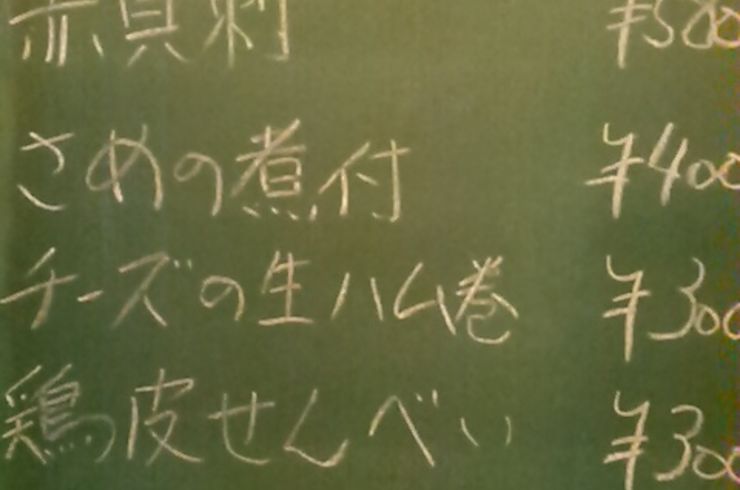 赤貝刺 ¥500
さめの煮付 ¥400
チーズの生ハム巻 ¥300
鶏皮せんべい ¥300